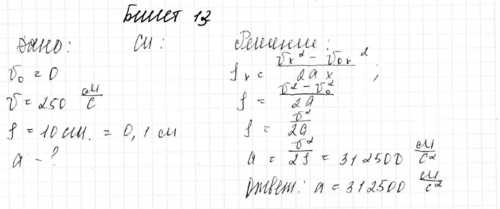 Билет 13
Дано:
v₀ = 0
v = 250 м/с
s = 10 см. = 0,1 м
a - ?
СИ:
Решение:
sₓ = (vₓ² - v₀ₓ²)/(2aₓ);
s = (v² - v₀²)/(2a)
s = v²/(2a)
a = v²/(2s) = 312500 м/с²
Ответ: a = 312500 м/с²